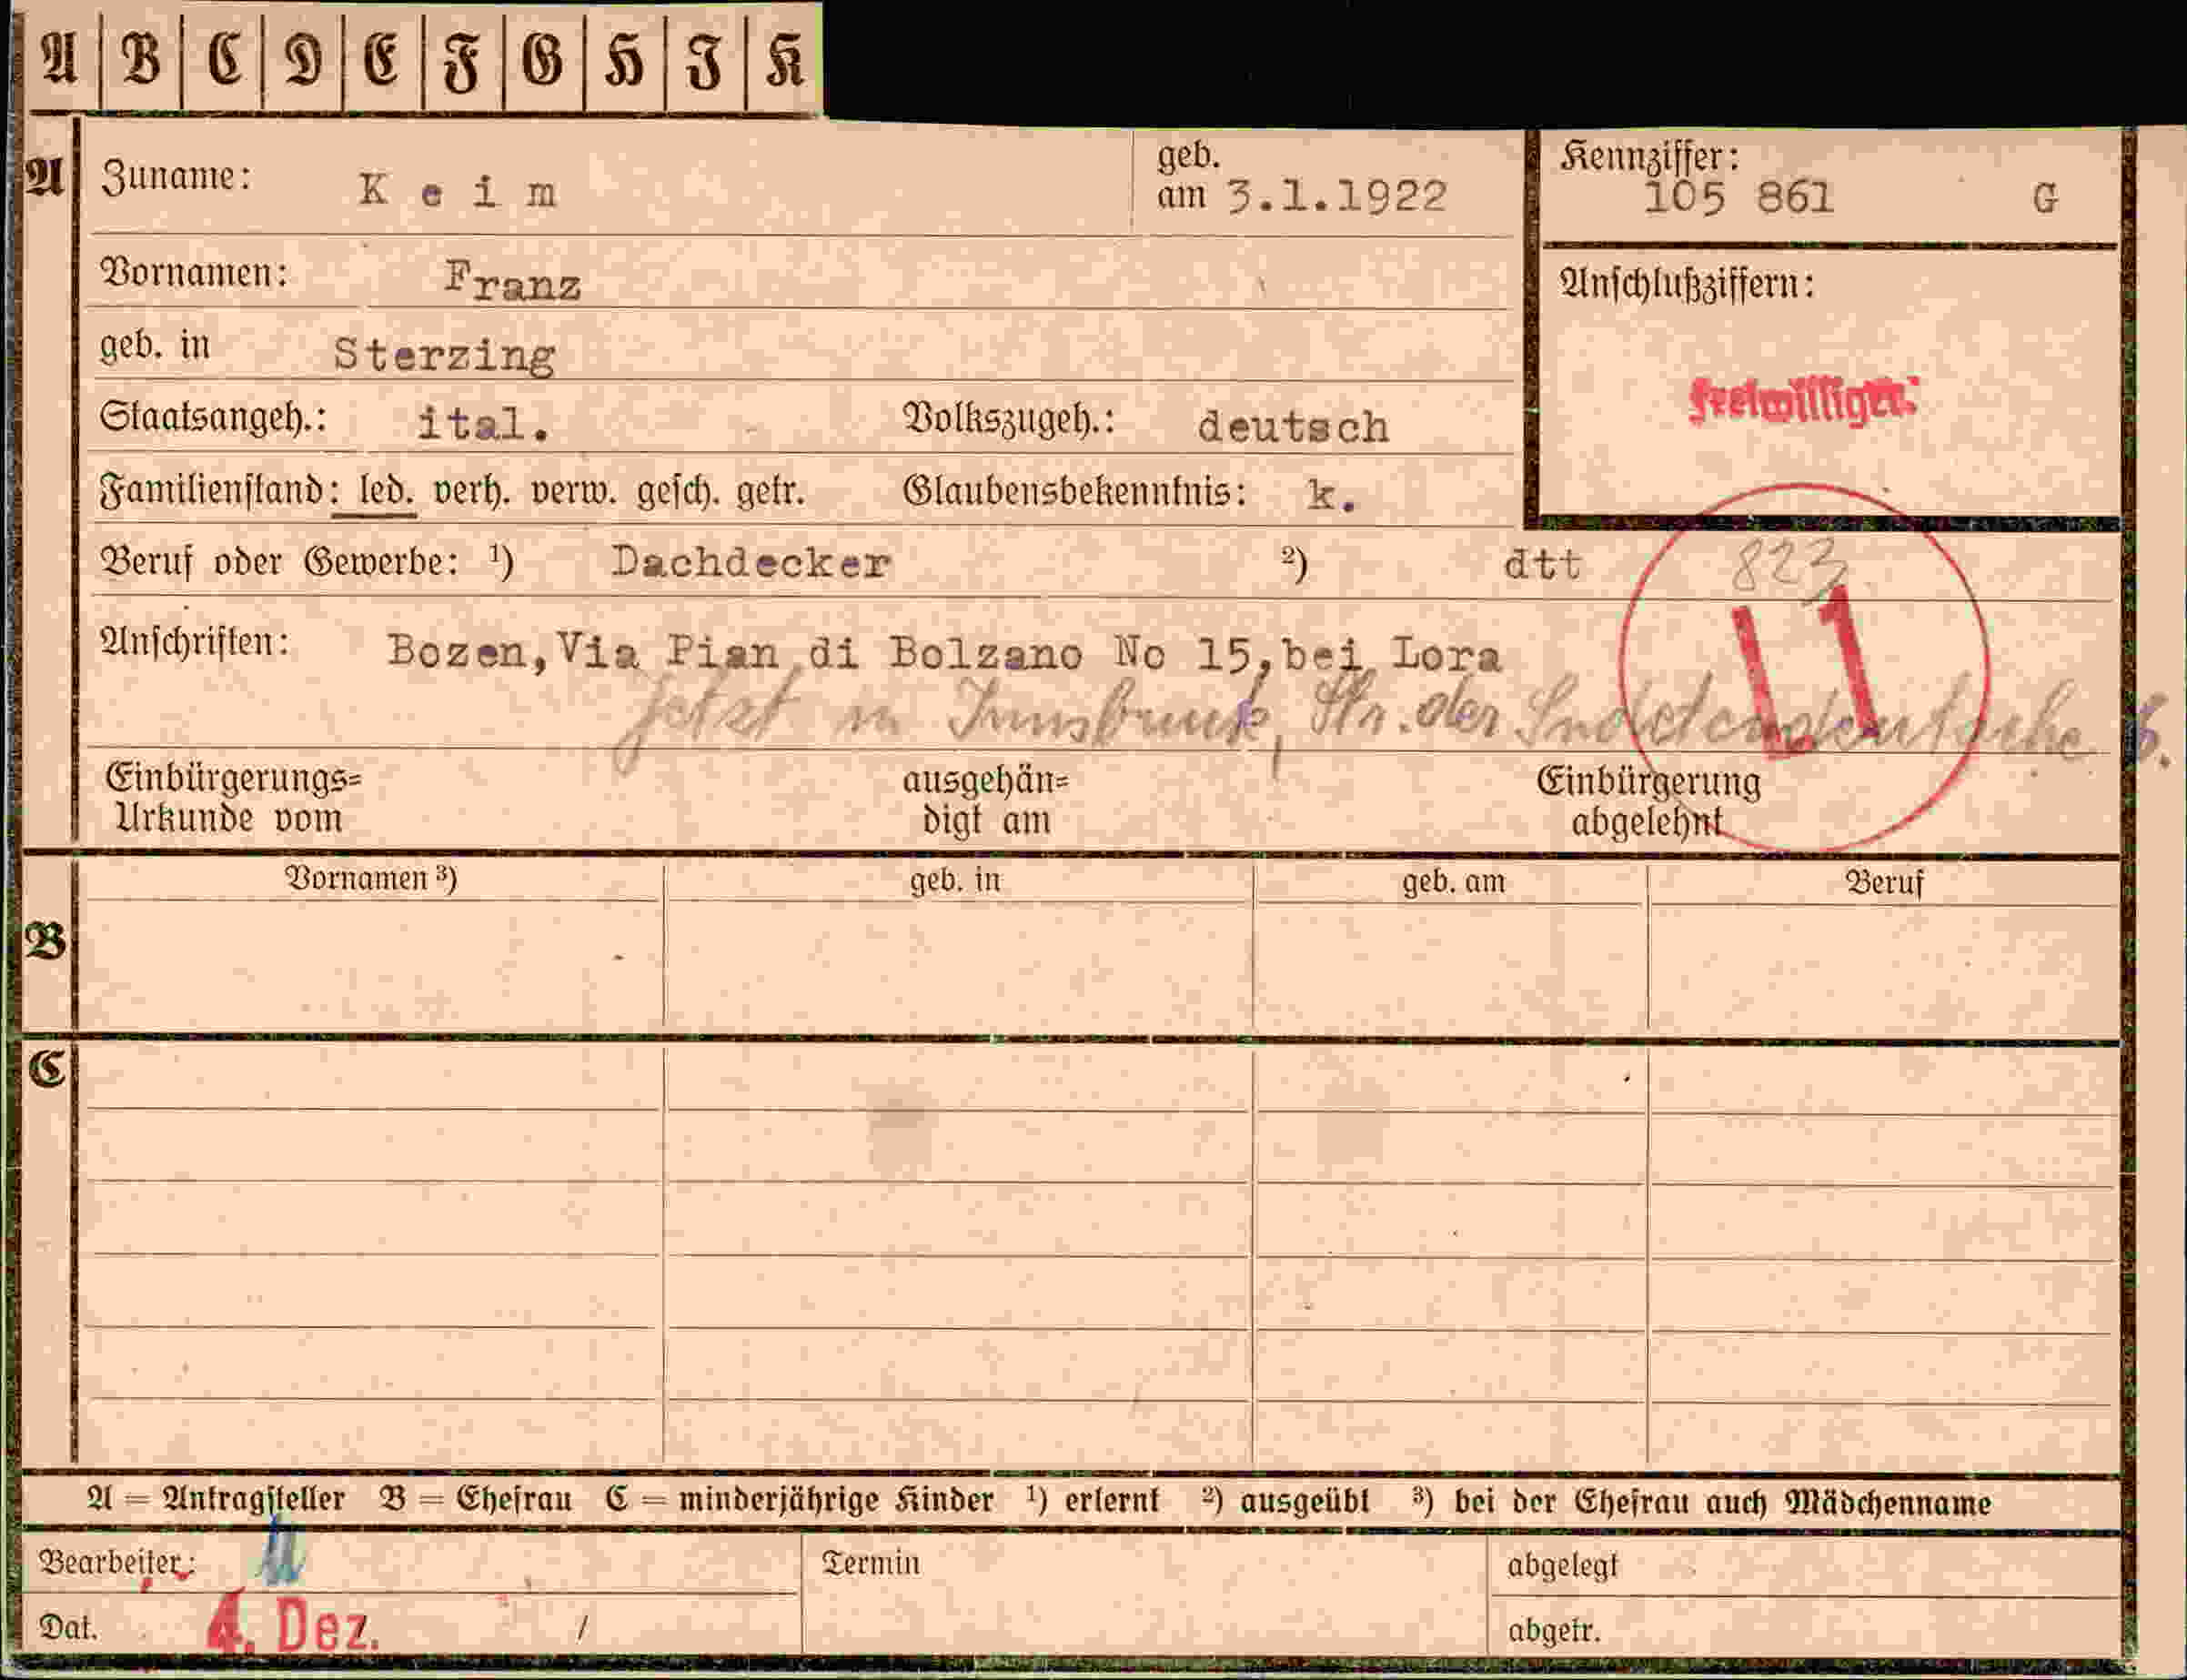 A B C D E F G H I K
A Zuname: Keim geb. am 3.1.1922 Kennziffer: 105 861 G
Vornamen: Franz Anschlußziffern:
geb. in Sterzing
Staatsangeh.: ital. Volkszugeh.: deutsch freiwilliger
Familienstand: led. verh. verw. gesch. getr. Glaubensbekenntnis: k.
Beruf oder Gewerbe: ¹) Dachdecker ²) dtt 823
Anschriften: Bozen, Via Pian di Bolzano No 15, bei Lora
jetzt in Innsbruck, Str. der Sudetendeutsche
Einbürgerungs= ausgehän= Einbürgerung
Urkunde vom digt am abgelehnt
Vornamen ³) geb. in geb. am Beruf
B
C
A = Antragsteller B = Ehefrau C = minderjährige Kinder ¹) erlernt ²) ausgeübt ³) bei der Ehefrau auch Mädchenname
Bearbeiter: Termin abgelegt
Dat. 4. Dez. / abgetr.